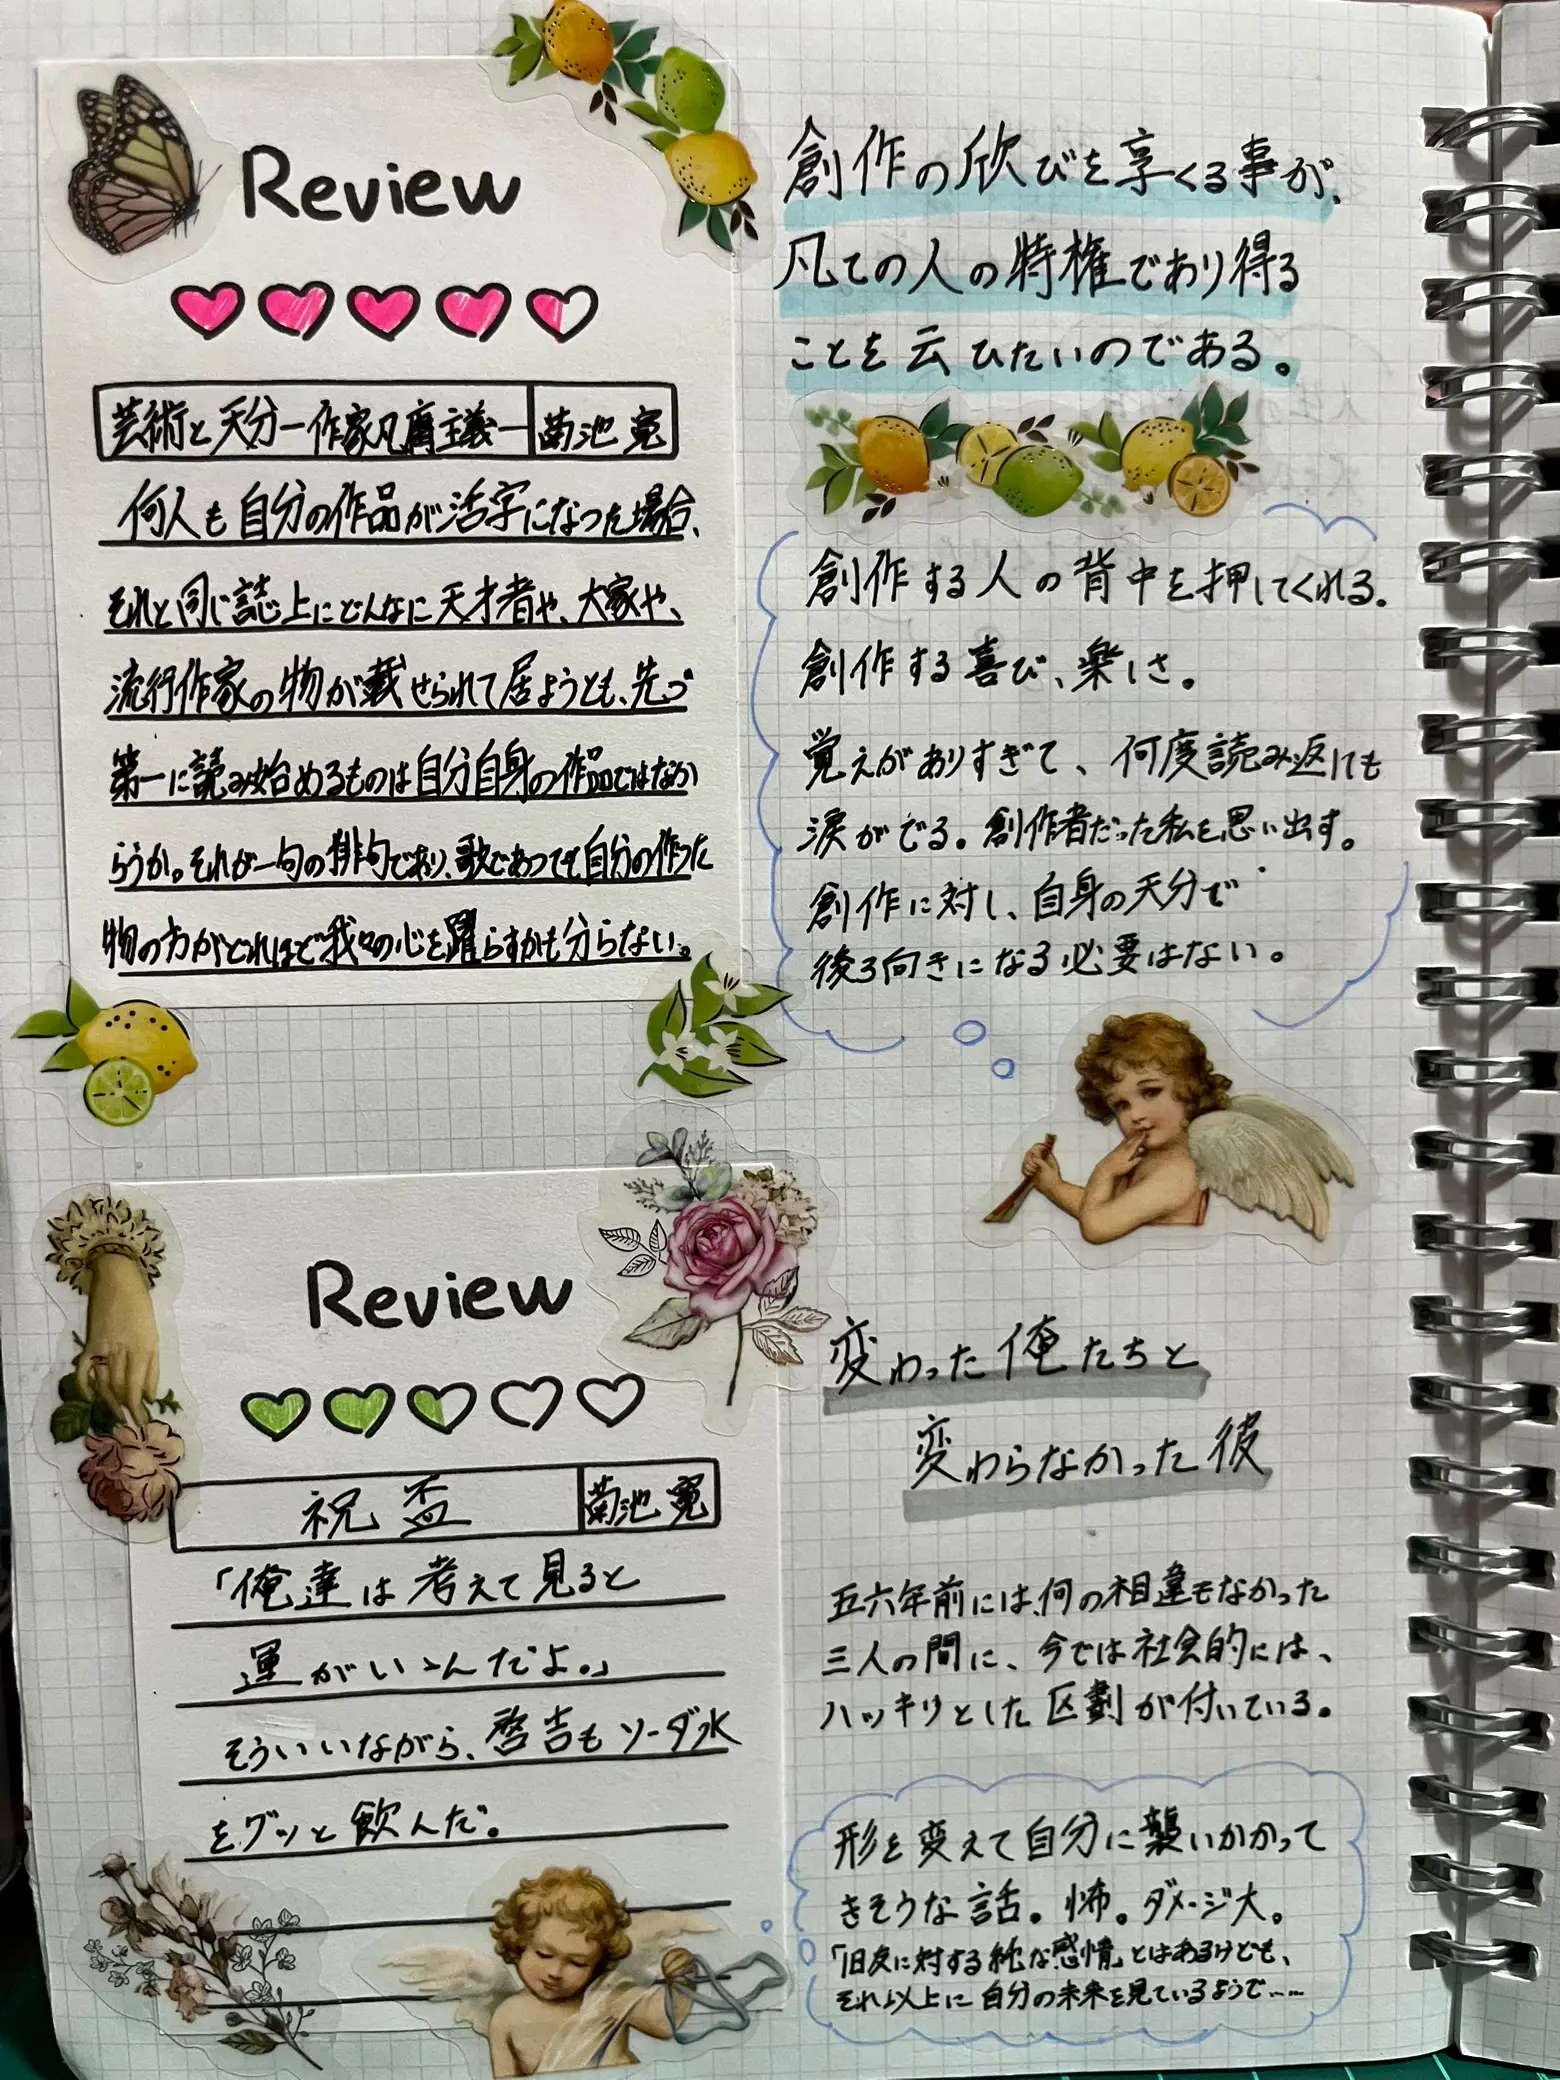 Review
芸術と天分―作家凡庸主義―
菊池 寛
何人も自分の作品が活字になった場合、
それと同じ誌上にどんなに天才者や、大家や、
流行作家の物が載せられて居ようとも、先づ
第一に読み始めるものは自分自身の作品ではなか
らうか。それが一句の俳句であり、歌であつても自分の作った
物の方がどれほど我々の心を躍らすかも分らない。
創作の欣びを享くる事が、
凡ての人の特権であり得る
ことを云ひたいのである。
創作する人の背中を押してくれる。
創作する喜び、楽しさ。
覚えがありすぎて、何度読み返しても
涙がでる。創作者だった私を思い出す。
創作に対し、自身の天分で
後ろ向きになる必要はない。
Review
祝盃
菊池 寛
「俺達は考えて見ると
運がいゝんだよ。」
そういいながら、啓吉もソーダ水
をグッと飲んだ。
変わった俺たちと
変わらなかった彼
五六年前には、何の相違もなかった
三人の間に、今では社会的には、
ハッキリとした区劃が付いている。
形を変えて自分に襲いかかって
きそうな話。怖。ダメージ大。
「旧友に対する純な感情」とはあるけども、
それ以上に自分の未来を見ているようで……